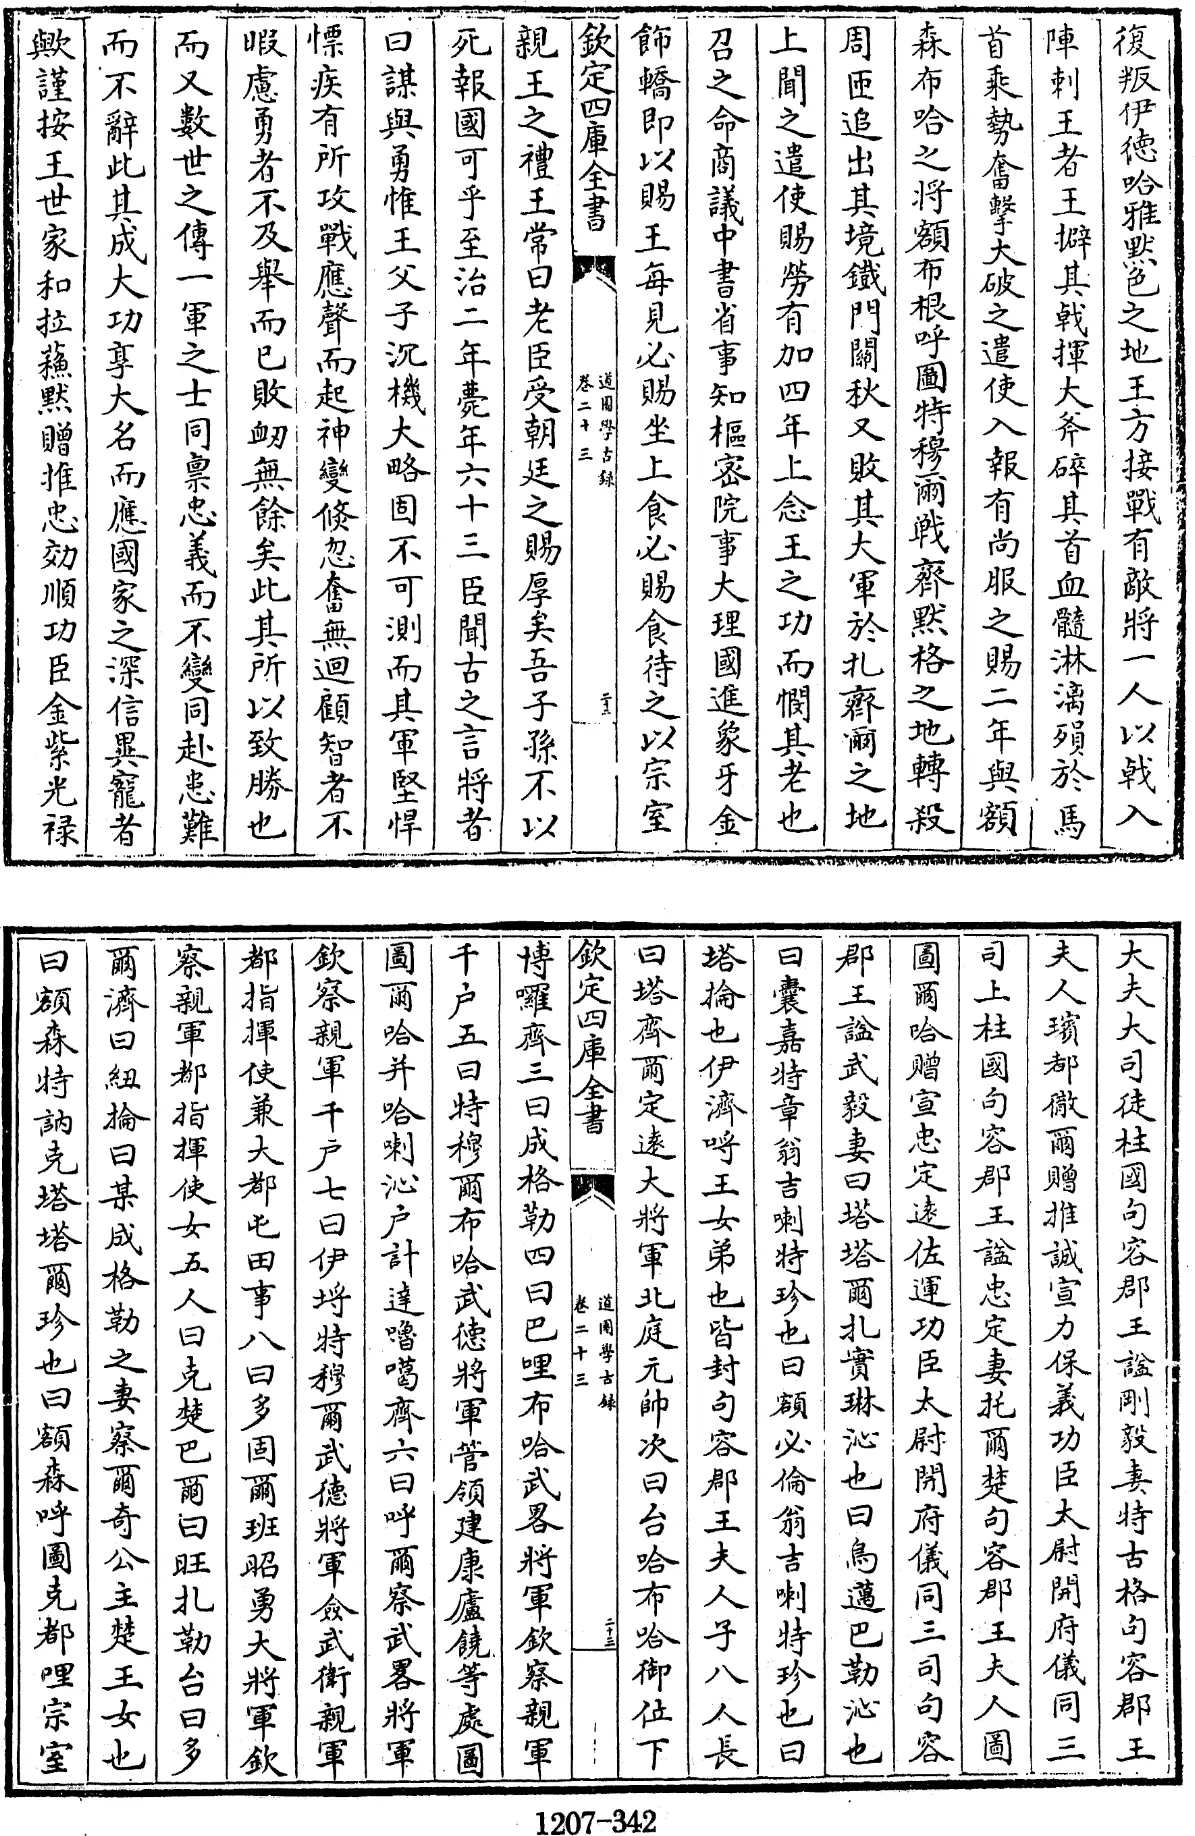 復叛伊徳哈雅黙色之地王方接戰有敵將一人以戟入
陣刺王者王擗其戟揮大斧碎其首血髓淋漓殞於馬
首乘勢奮擊大破之遣使入報有尚服之賜二年與額
森布哈之將額布根呼圖特穆爾戰齊黙格之地轉殺
周匝追出其境鐵門闗秋又敗其大軍於扎齊爾之地
上聞之遣使賜勞有加四年上念王之功而憫其老也
召之命商議中書省事知樞密院事大理國進象牙金
飾轎即以賜王每見必賜坐上食必賜食待之以宗室
欽定四庫全書
道園學古録
卷二十三
二十二
親王之禮王常曰老臣受朝廷之賜厚矣吾子孫不以
死報國可乎至治二年薨年六十三臣聞古之言將者
曰謀與勇惟王父子沉機大略固不可測而其軍堅悍
慓疾有所攻戰應聲而起神變倏忽奮無迴顧智者不
暇慮勇者不及舉而已敗衂無餘矣此其所以致勝也
而又數世之傳一軍之士同禀忠義而不變同赴患難
而不辭此其成大功享大名而應國家之深信異寵者
歟謹按王世家和拉蘓黙贈推忠効順功臣金紫光禄
大夫大司徒柱國句容郡王諡剛毅妻特古格句容郡王
夫人璸都徹爾贈推誠宣力保義功臣太尉開府儀同三
司上柱國句容郡王諡忠定妻托爾楚句容郡王夫人圖
圖爾哈贈宣忠定逺佐運功臣太尉開府儀同三司句容
郡王諡武毅妻曰塔塔爾扎實琳沁也曰烏邁巴勒沁也
曰囊嘉特章翁吉喇特珍也曰額必倫翁吉喇特珍也曰
塔掄也伊濟哷王女弟也皆封句容郡王夫人子八人長
曰塔齊爾定逺大將軍北庭元帥次曰台哈布哈御位下
欽定四庫全書
道園學古録
卷二十三
二十三
博囉齊三曰成格勒四曰巴哩布哈武畧將軍欽察親軍
千户五曰特穆爾布哈武德將軍管領建康廬饒等處圖
圖爾哈并哈喇沁户計達嚕噶齊六曰呼爾察武畧將軍
欽察親軍千户七曰伊埒特穆爾武徳將軍僉武衛親軍
都指揮使兼大都屯田事八曰多固爾班昭勇大將軍欽
察親軍都指揮使女五人曰克楚巴爾曰旺扎勒台曰多
爾濟曰紐掄曰某成格勒之妻察爾奇公主楚王女也
曰額森特訥克塔塔爾珍也曰額森呼圖克都哩宗室
1207-342